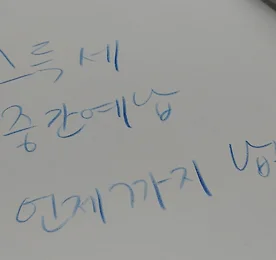 득세
중간예납
언제까지